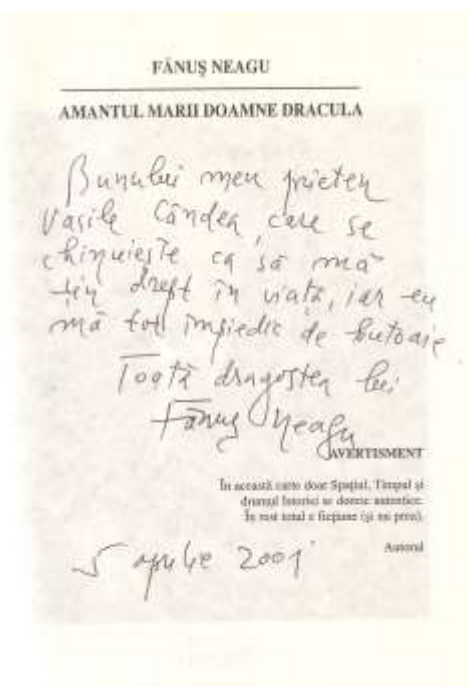 FĂNUȘ NEAGU
AMANTUL MARII DOAMNE DRACULA
Bunului meu prieten
Vasile Cândea, care se
chinuiește ca să mă
țin drept în viață, iar eu
mă tot împiedic de butoaie
Toată dragostea lui
Fănuș Neagu
AVERTISMENT
În această carte doar Spațiul, Timpul și
drumul Istoriei se doresc autentice.
În rest totul e ficțiune (și nu prea).
Autorul
5 aprilie 2001